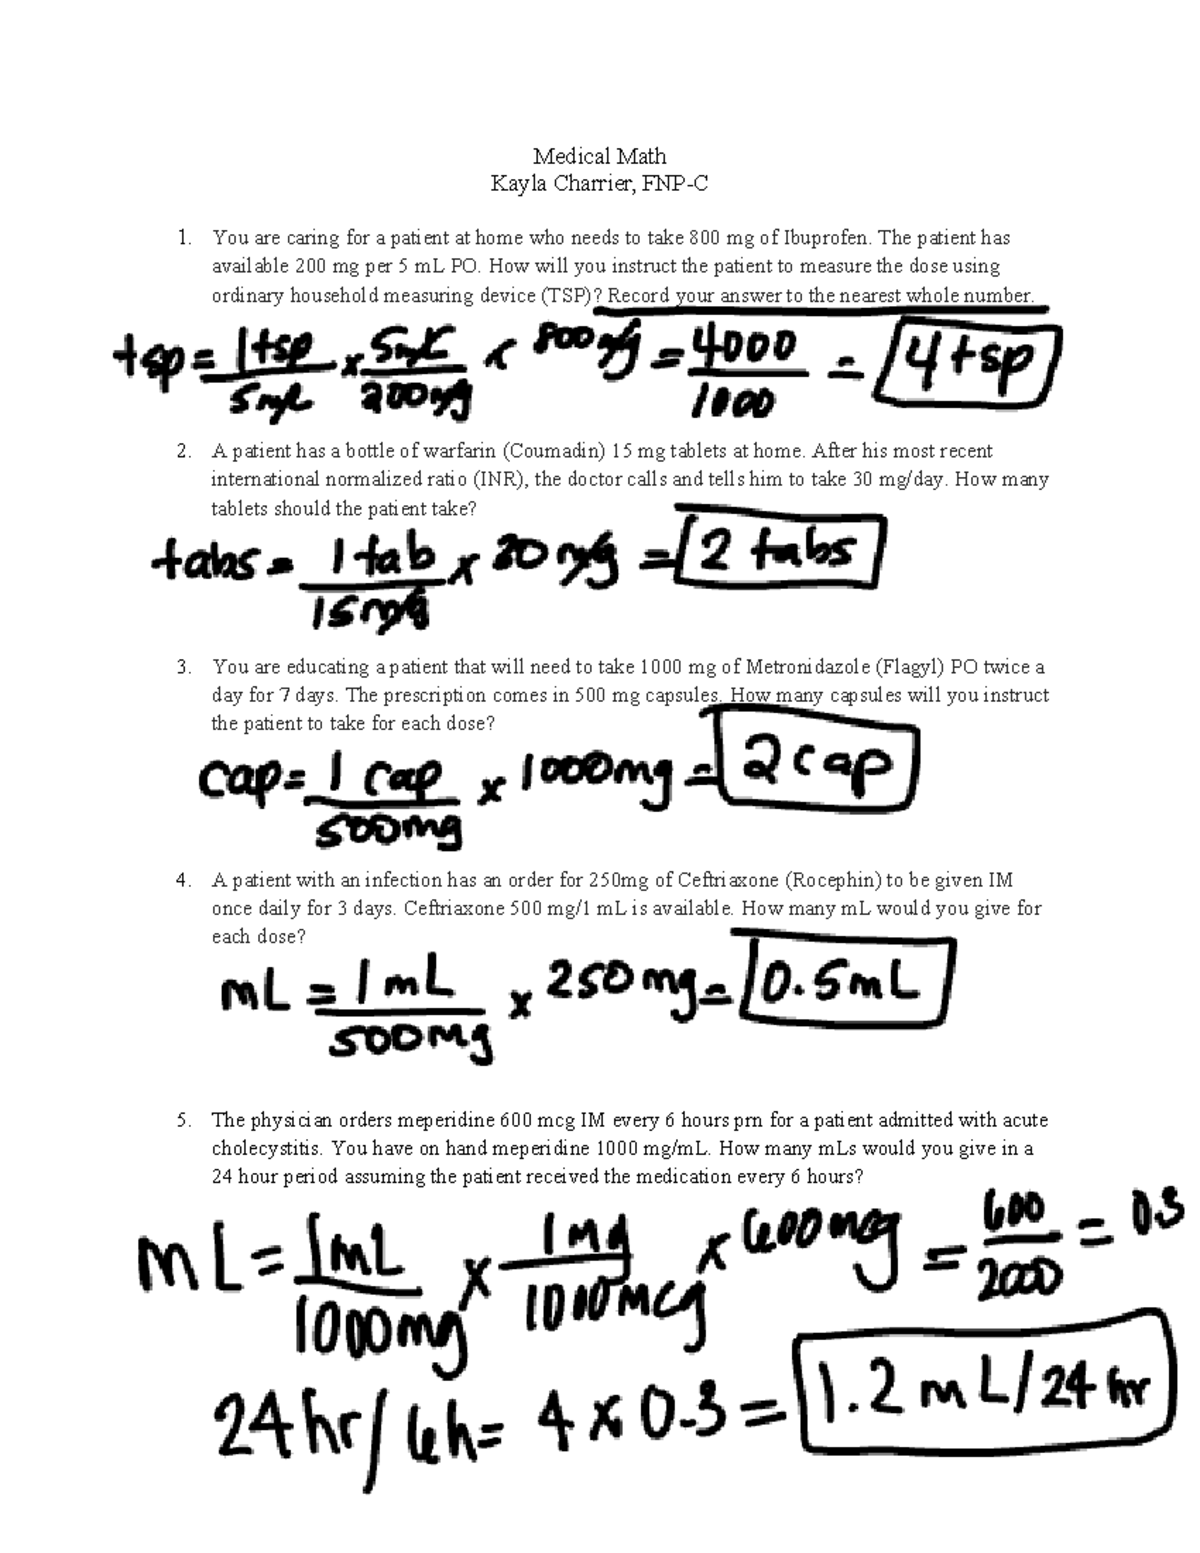 Medical Math
Kayla Charrier, FNP-C
1. You are caring for a patient at home who needs to take 800 mg of Ibuprofen. The patient has
available 200 mg per 5 mL PO. How will you instruct the patient to measure the dose using
ordinary household measuring device (TSP)? Record your answer to the nearest whole number.
tsp = 1 tsp / 5 mL x 5 mL / 200 mg x 800 mg = 4000 / 1000 = 4 tsp
2. A patient has a bottle of warfarin (Coumadin) 15 mg tablets at home. After his most recent
international normalized ratio (INR), the doctor calls and tells him to take 30 mg/day. How many
tablets should the patient take?
tabs = 1 tab / 15 mg x 30 mg = 2 tabs
3. You are educating a patient that will need to take 1000 mg of Metronidazole (Flagyl) PO twice a
day for 7 days. The prescription comes in 500 mg capsules. How many capsules will you instruct
the patient to take for each dose?
cap = 1 cap / 500mg x 1000mg = 2 cap
4. A patient with an infection has an order for 250mg of Ceftriaxone (Rocephin) to be given IM
once daily for 3 days. Ceftriaxone 500 mg/1 mL is available. How many mL would you give for
each dose?
mL = 1 mL / 500mg x 250 mg = 0.5mL
5. The physician orders meperidine 600 mcg IM every 6 hours prn for a patient admitted with acute
cholecystitis. You have on hand meperidine 1000 mg/mL. How many mLs would you give in a
24 hour period assuming the patient received the medication every 6 hours?
mL = 1mL / 1000mg x 1mg / 1000mcg x 600mcg = 600 / 2000 = 0.3
24hr/6h = 4 x 0.3 = 1.2 mL/24 hr